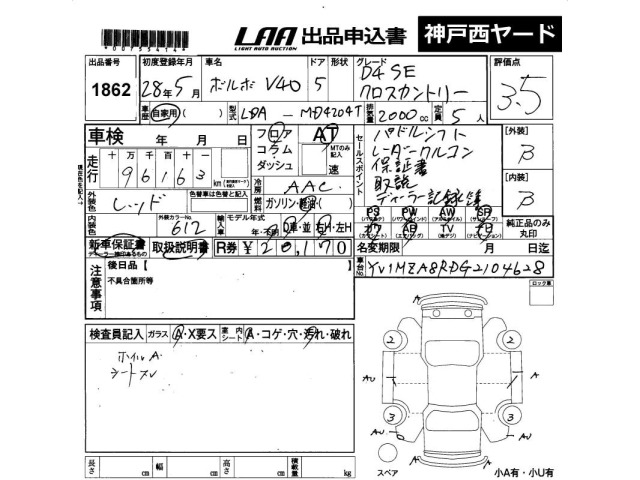 00755414
LAA 出品申込書 神戸西ヤード
LIGHT AUTO AUCTION
出品番号 初度登録年月 車名 ドア 形状 グレード 評価点
1862 28年5月 ボルボ V40 5 D4 SE クロスカントリー 3.5
車歴 自家用・( ) 型式 LDA - MD4204T 排気量 2000cc 定員 5人
車検 年 月 日 フロア コラム ダッシュ AT MTのみ記入 速
セールスポイント パドルシフト [外装] B
レーダークルコン
保証書
取説
ディーラー記録簿 [内装] B
走行 十万千百十 96163 km
冷房 AAC
外装色 レッド 色替車は色替と記入 燃料 ガソリン・軽油・( )
PS PW AW SR
カワ AB TV ナビ 純正品のみ丸印
内装色 外装カラーNo. 612 モデル年式 年・不明 輸入車 D車・並 右H・左H
新車保証書 取扱説明書 R券 ¥20,170 名変期限 月 日迄
注意事項 後日品【 】 車台No. YV1MZA8RDG2104628
不具合箇所等
ロック車
検査員記入 ガラス A・X要ス 車内シート A・コゲ・穴・汚れ・破れ
ホイルA
シートスレ
A
2 2
AU A
3 3
AU AU
A A
スペア 小A有・小U有
長さ cm 幅 cm 高さ cm 積載量 kg